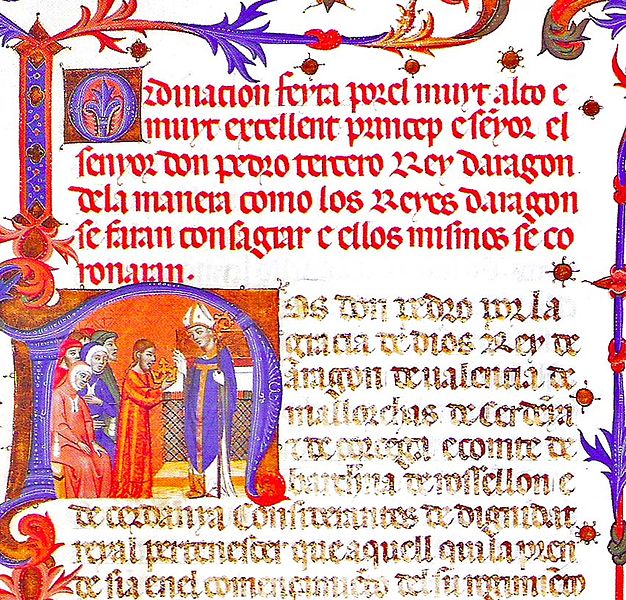 Ordinacion feyta por el muyt alto e
muyt excellent princep e señyor el
senyor don pedro tercero Rey daragon
dela manera como los Reyes daragon
se faran consagrar e ellos mismos se co
ronaran.
Nos don pedro por la
gracia de dios Rey de
Aragon de ualencia de
mallorchas de Cerdeñ
e de corcega e comte de
barchna de rossellon e
de cerdanya Considerantes de dignidat
reyal pertenescer que aquell qui la pren
de sia en el començamiẽto del su regimiẽto